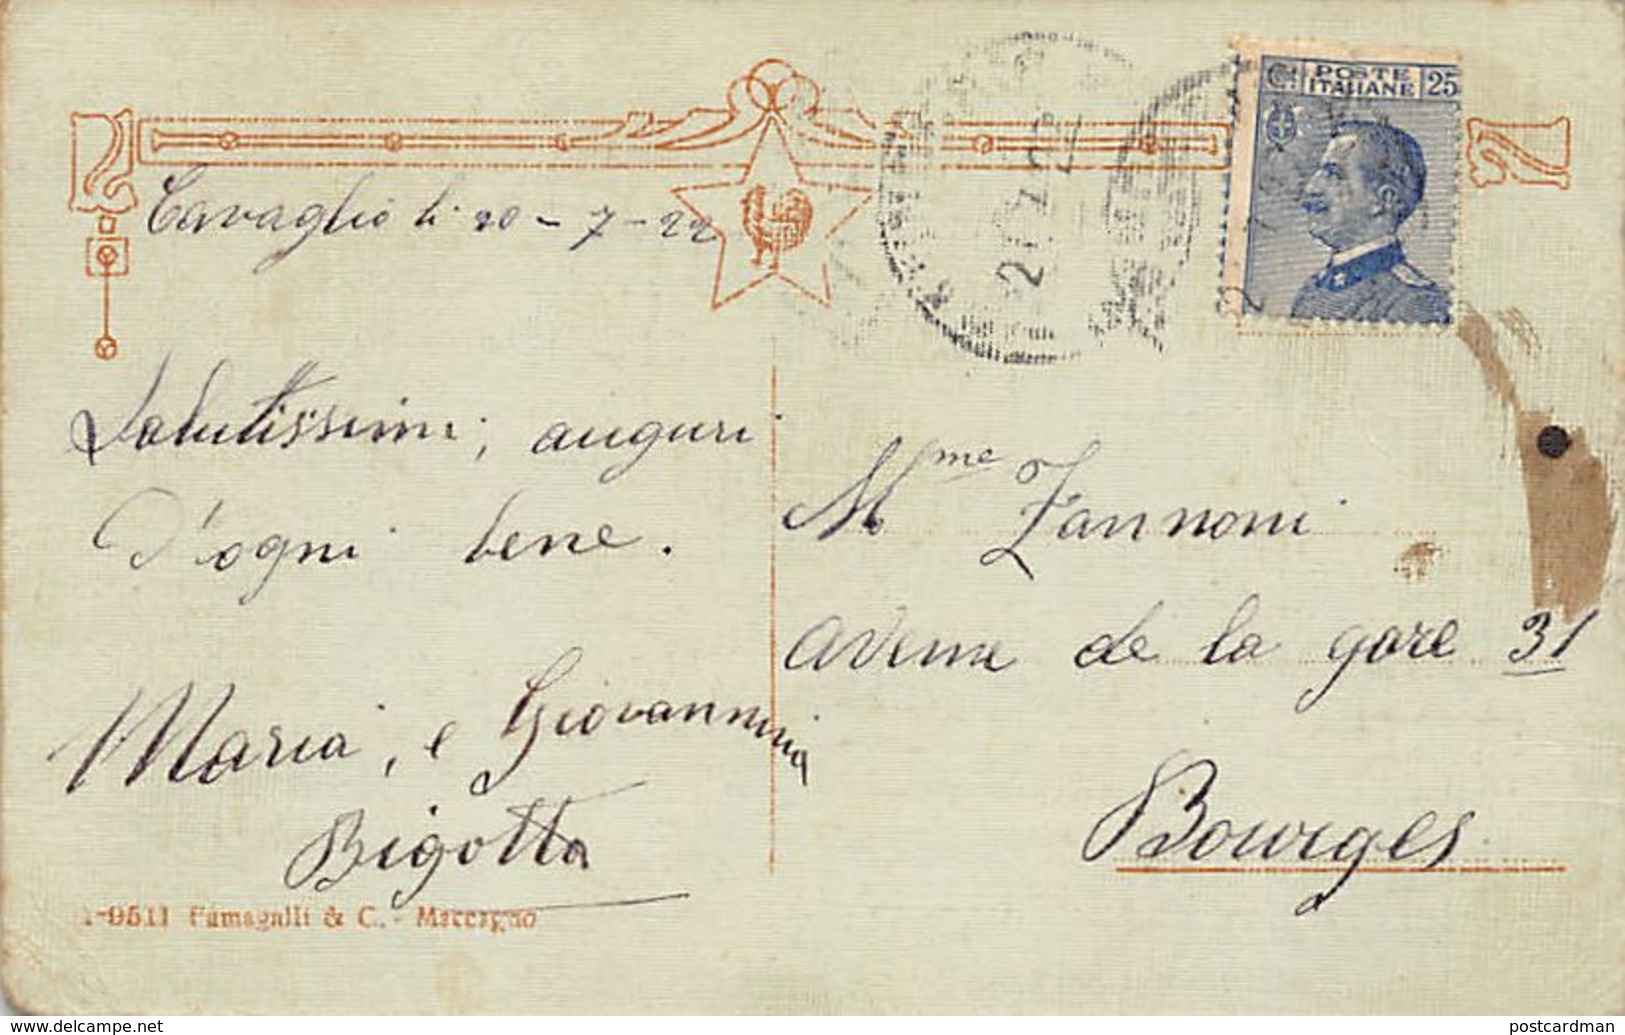 Cavaglio li 20 - 7 - 22
Salutissimi, auguri
d'ogni bene.
Maria, e Giovannina
Bigotta
1-9511 Fumagalli & C. - Maccagno
Cmi POSTE ITALIANE 25
Mme Zannoni
avenue de la gare 31
Bourges
www.delcampe.net
postcardman